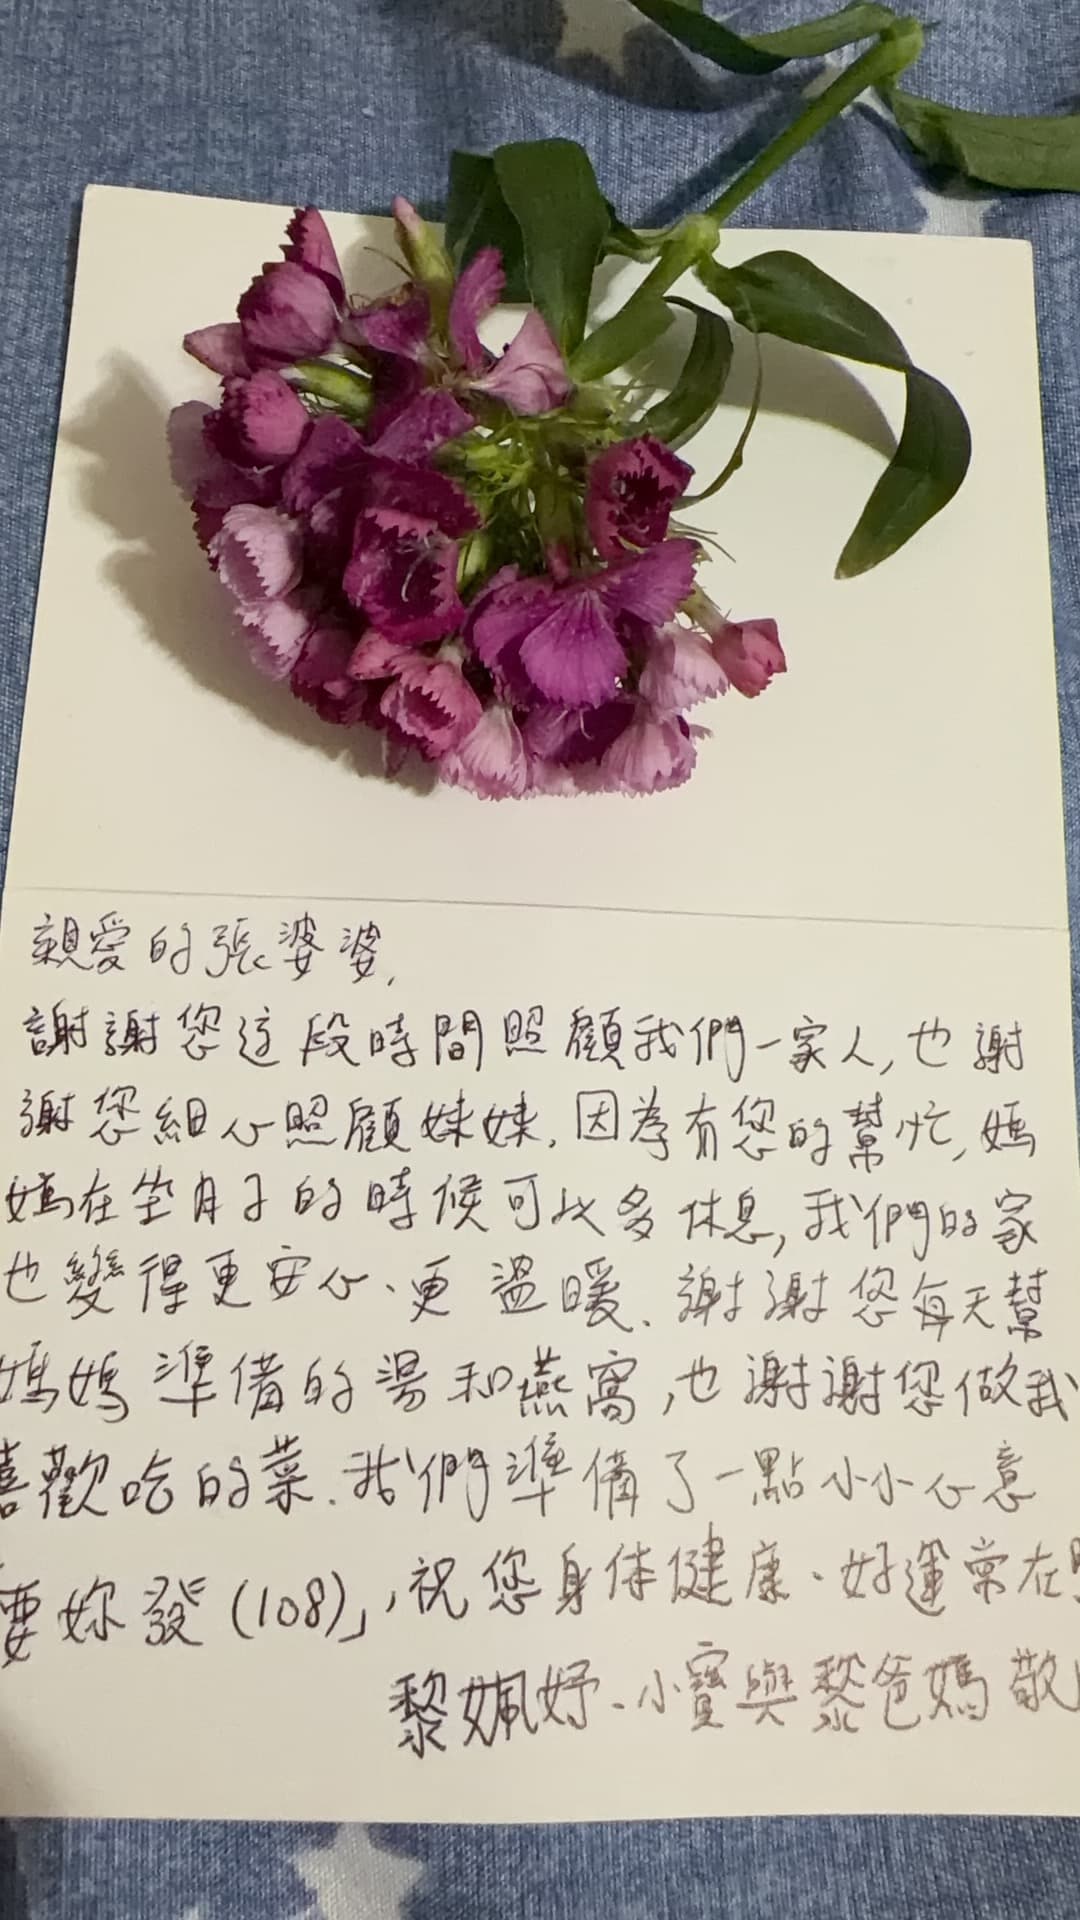 親愛的張婆婆,
謝謝您這段時間照顧我們一家人,也謝
謝您細心照顧妹妹.因為有您的幫忙,媽
媽在坐月子的時候可以多休息,我們的家
也變得更安心、更溫暖.謝謝您每天幫
媽媽準備的湯和燕窩,也謝謝您做我
喜歡吃的菜.我們準備了一點小小心意
要妳發(108)」,祝您身体健康、好運常在
黎姵妤、小寶與黎爸媽 敬